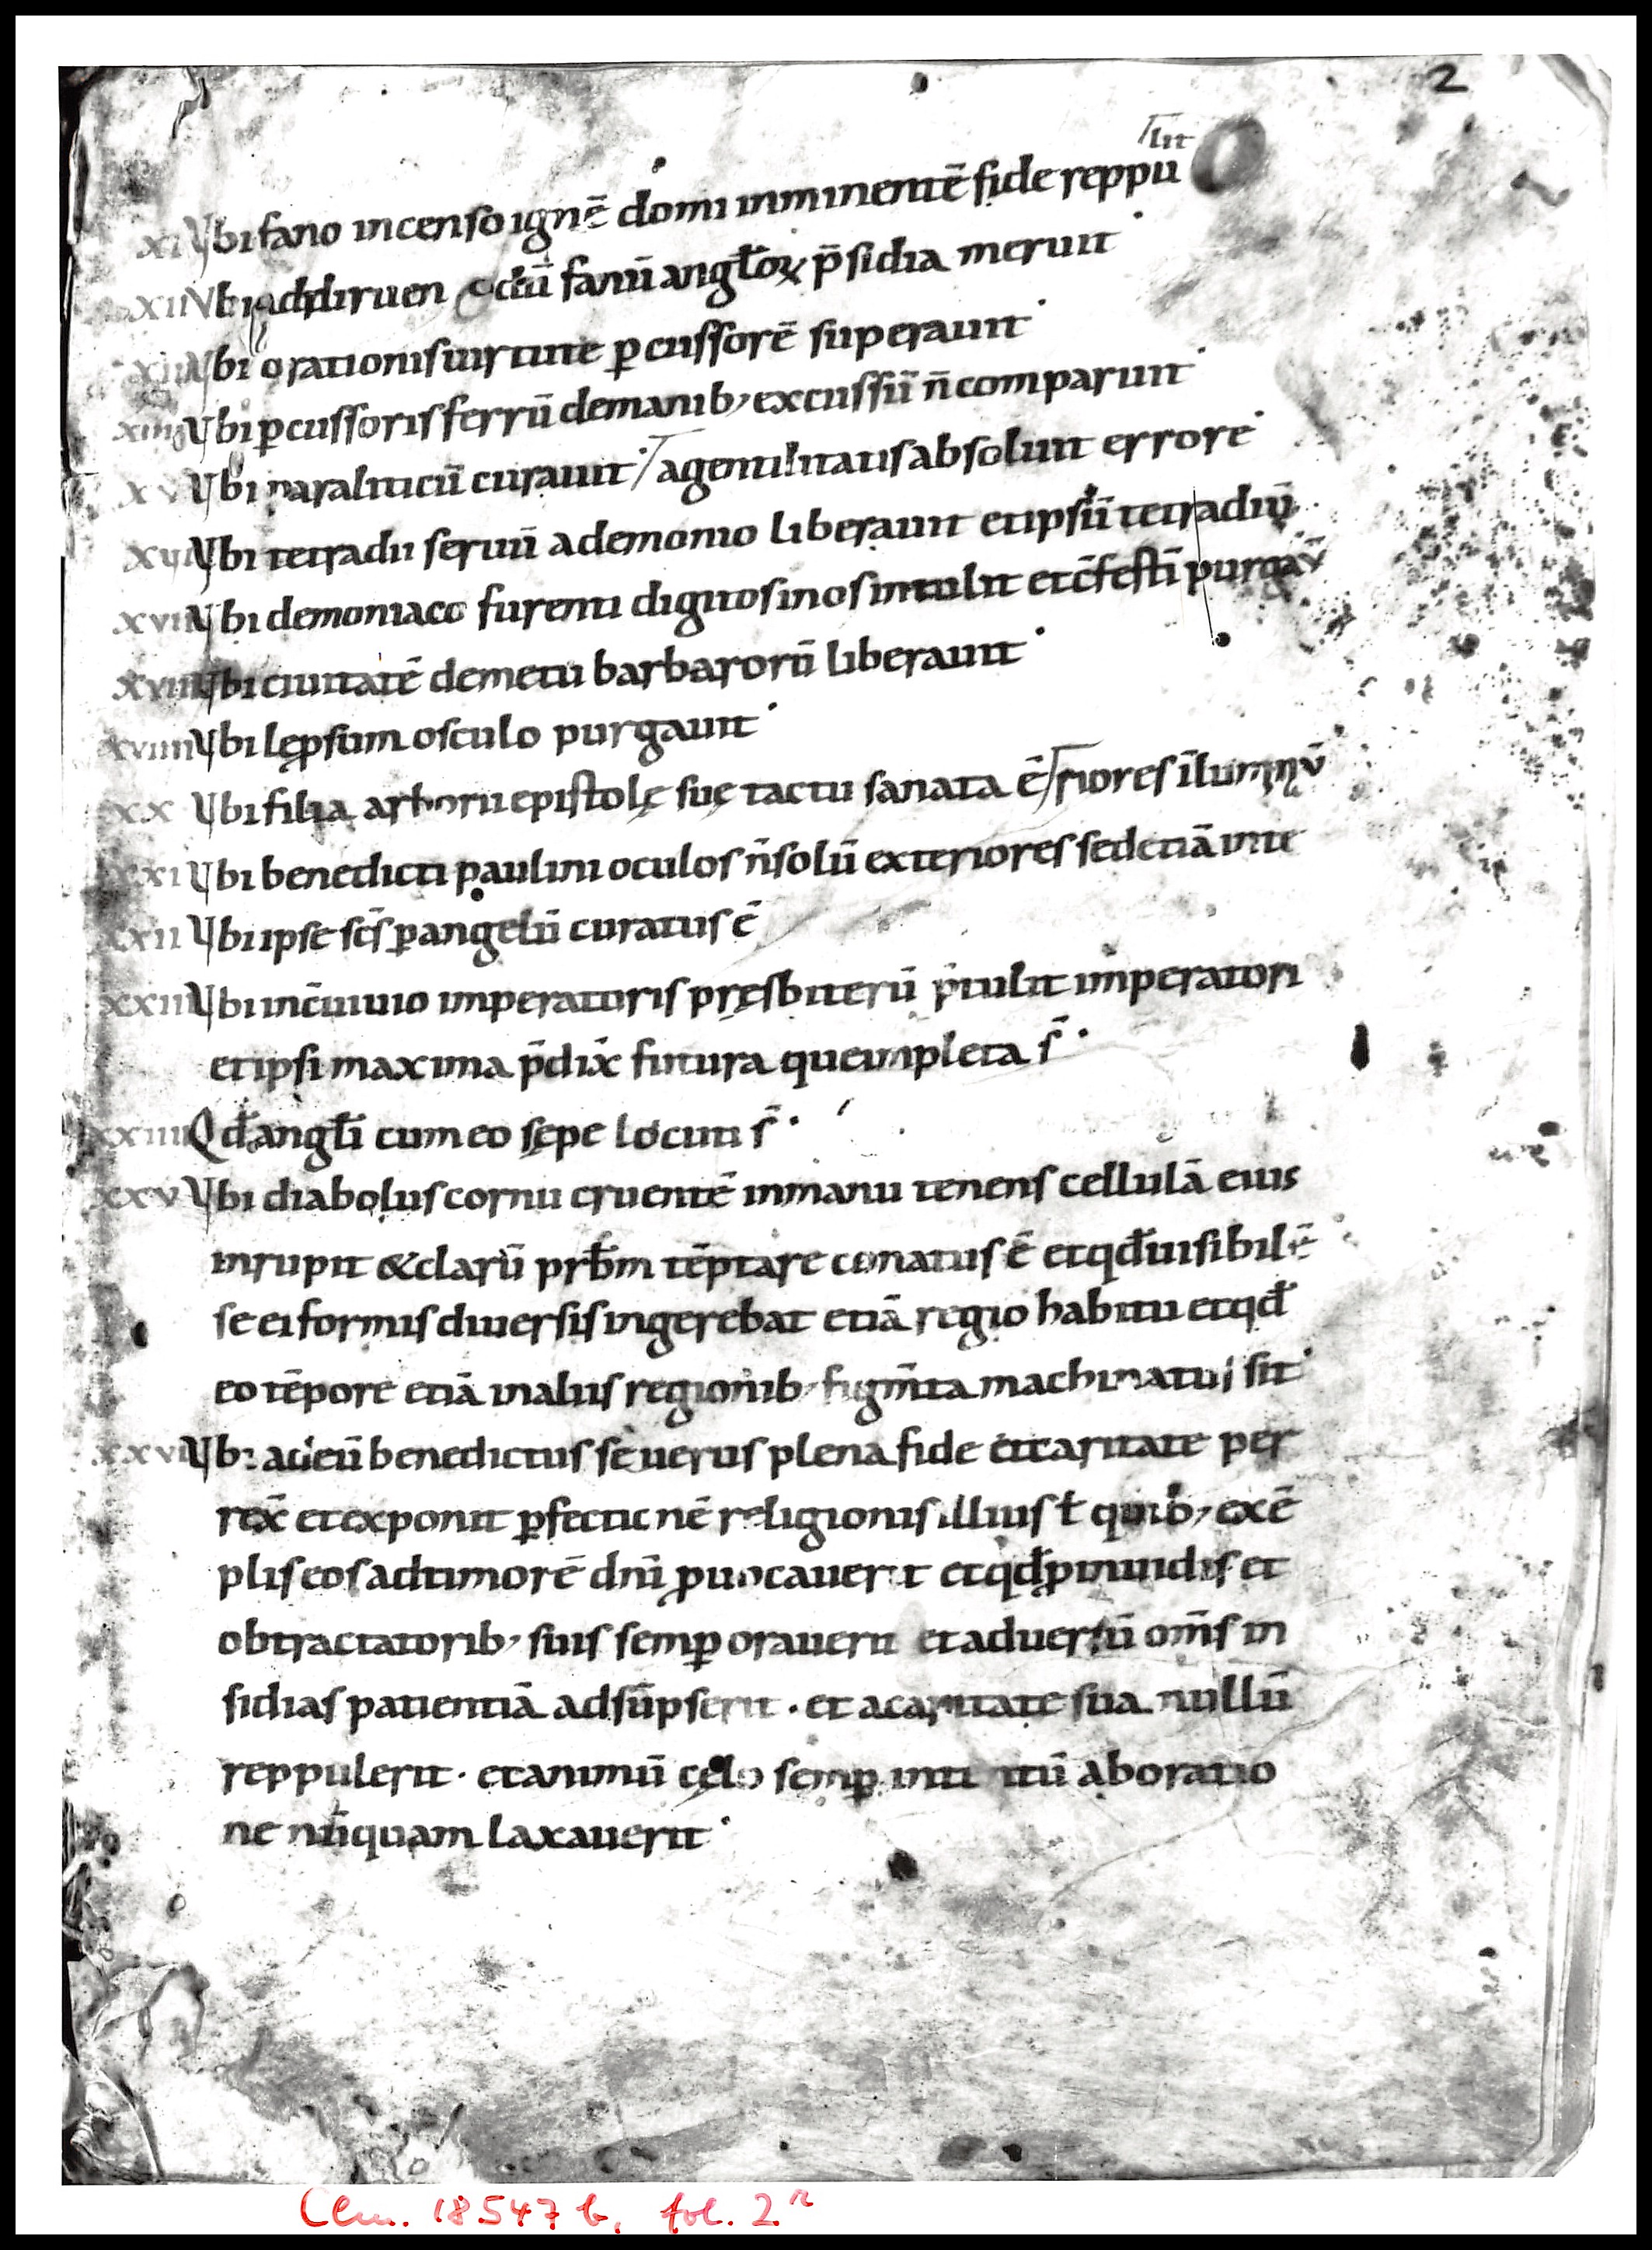 2
lit
xi Vbi fano incenso ignē domi inminentē fide reppu
xii Vbi addiruendū fanū anglōꝝ p̄sidia meruit
xiii Vbi orationis uirtute ꝑcussorē superauit
xiiii Vbi ꝑcussoris ferrū de manib; excussū n̄ comparuit
xv Vbi paraliticū curauit / a gentilitatis absoluit errore
xvi Vbi tetradii seruū a demonio liberauit et ipsū tetradiū
xvii Vbi demoniaco furenti digitos in os intulit et c̄festī purgav̄
xviii Vbi ciuitatē de metu barbarorū liberauit
xviiii Vbi lęprsum osculo purgauit
xx Vbi filia arborii epistolę suę tactu sanata ē / riores īluminv̄
xxi Vbi benedicti paulini oculos n̄ solū exteriores sed etiā inte
xxii Vbi ipse sc̄s ꝑ angelū curatus ē
xxiii Vbi in c̄uiuio imperatoris pręsbiterū p̄tulit imperatori
et ipsi maxima p̄dix̄ futura que impleta s̄
xxiiii Qđ angłi cum eo sępe locuti s̄
xxv Vbi diabolus cornu cruentē in manu tenens cellulā eius
inrupit & clarū prb̄m tēptare conatus ē et qđ uisibilē
se ei formis diuersis ingerebat etiā regio habitu et qđ
eo tēpore etiā in aliis regionib; figm̄ta machinatus sit
xxvi Vbi ad eū benedictus seuerus plena fide et caritate per
rex̄ et exponit ꝑfectionē religionis illius ł quib; exē
plis eos ad timorē dn̄i ꝓuocauerit et qđ ꝓ inuidis et
obtractatorib; suis semꝑ orauerit et aduersū om̄s in
sidias patientiā adsūpserit · et a caritate sua nullū
reppulerit · et animū cęlo semꝑ intentū ab oratio
ne nūquam laxauerit
Clm. 18547 b, fol. 2r